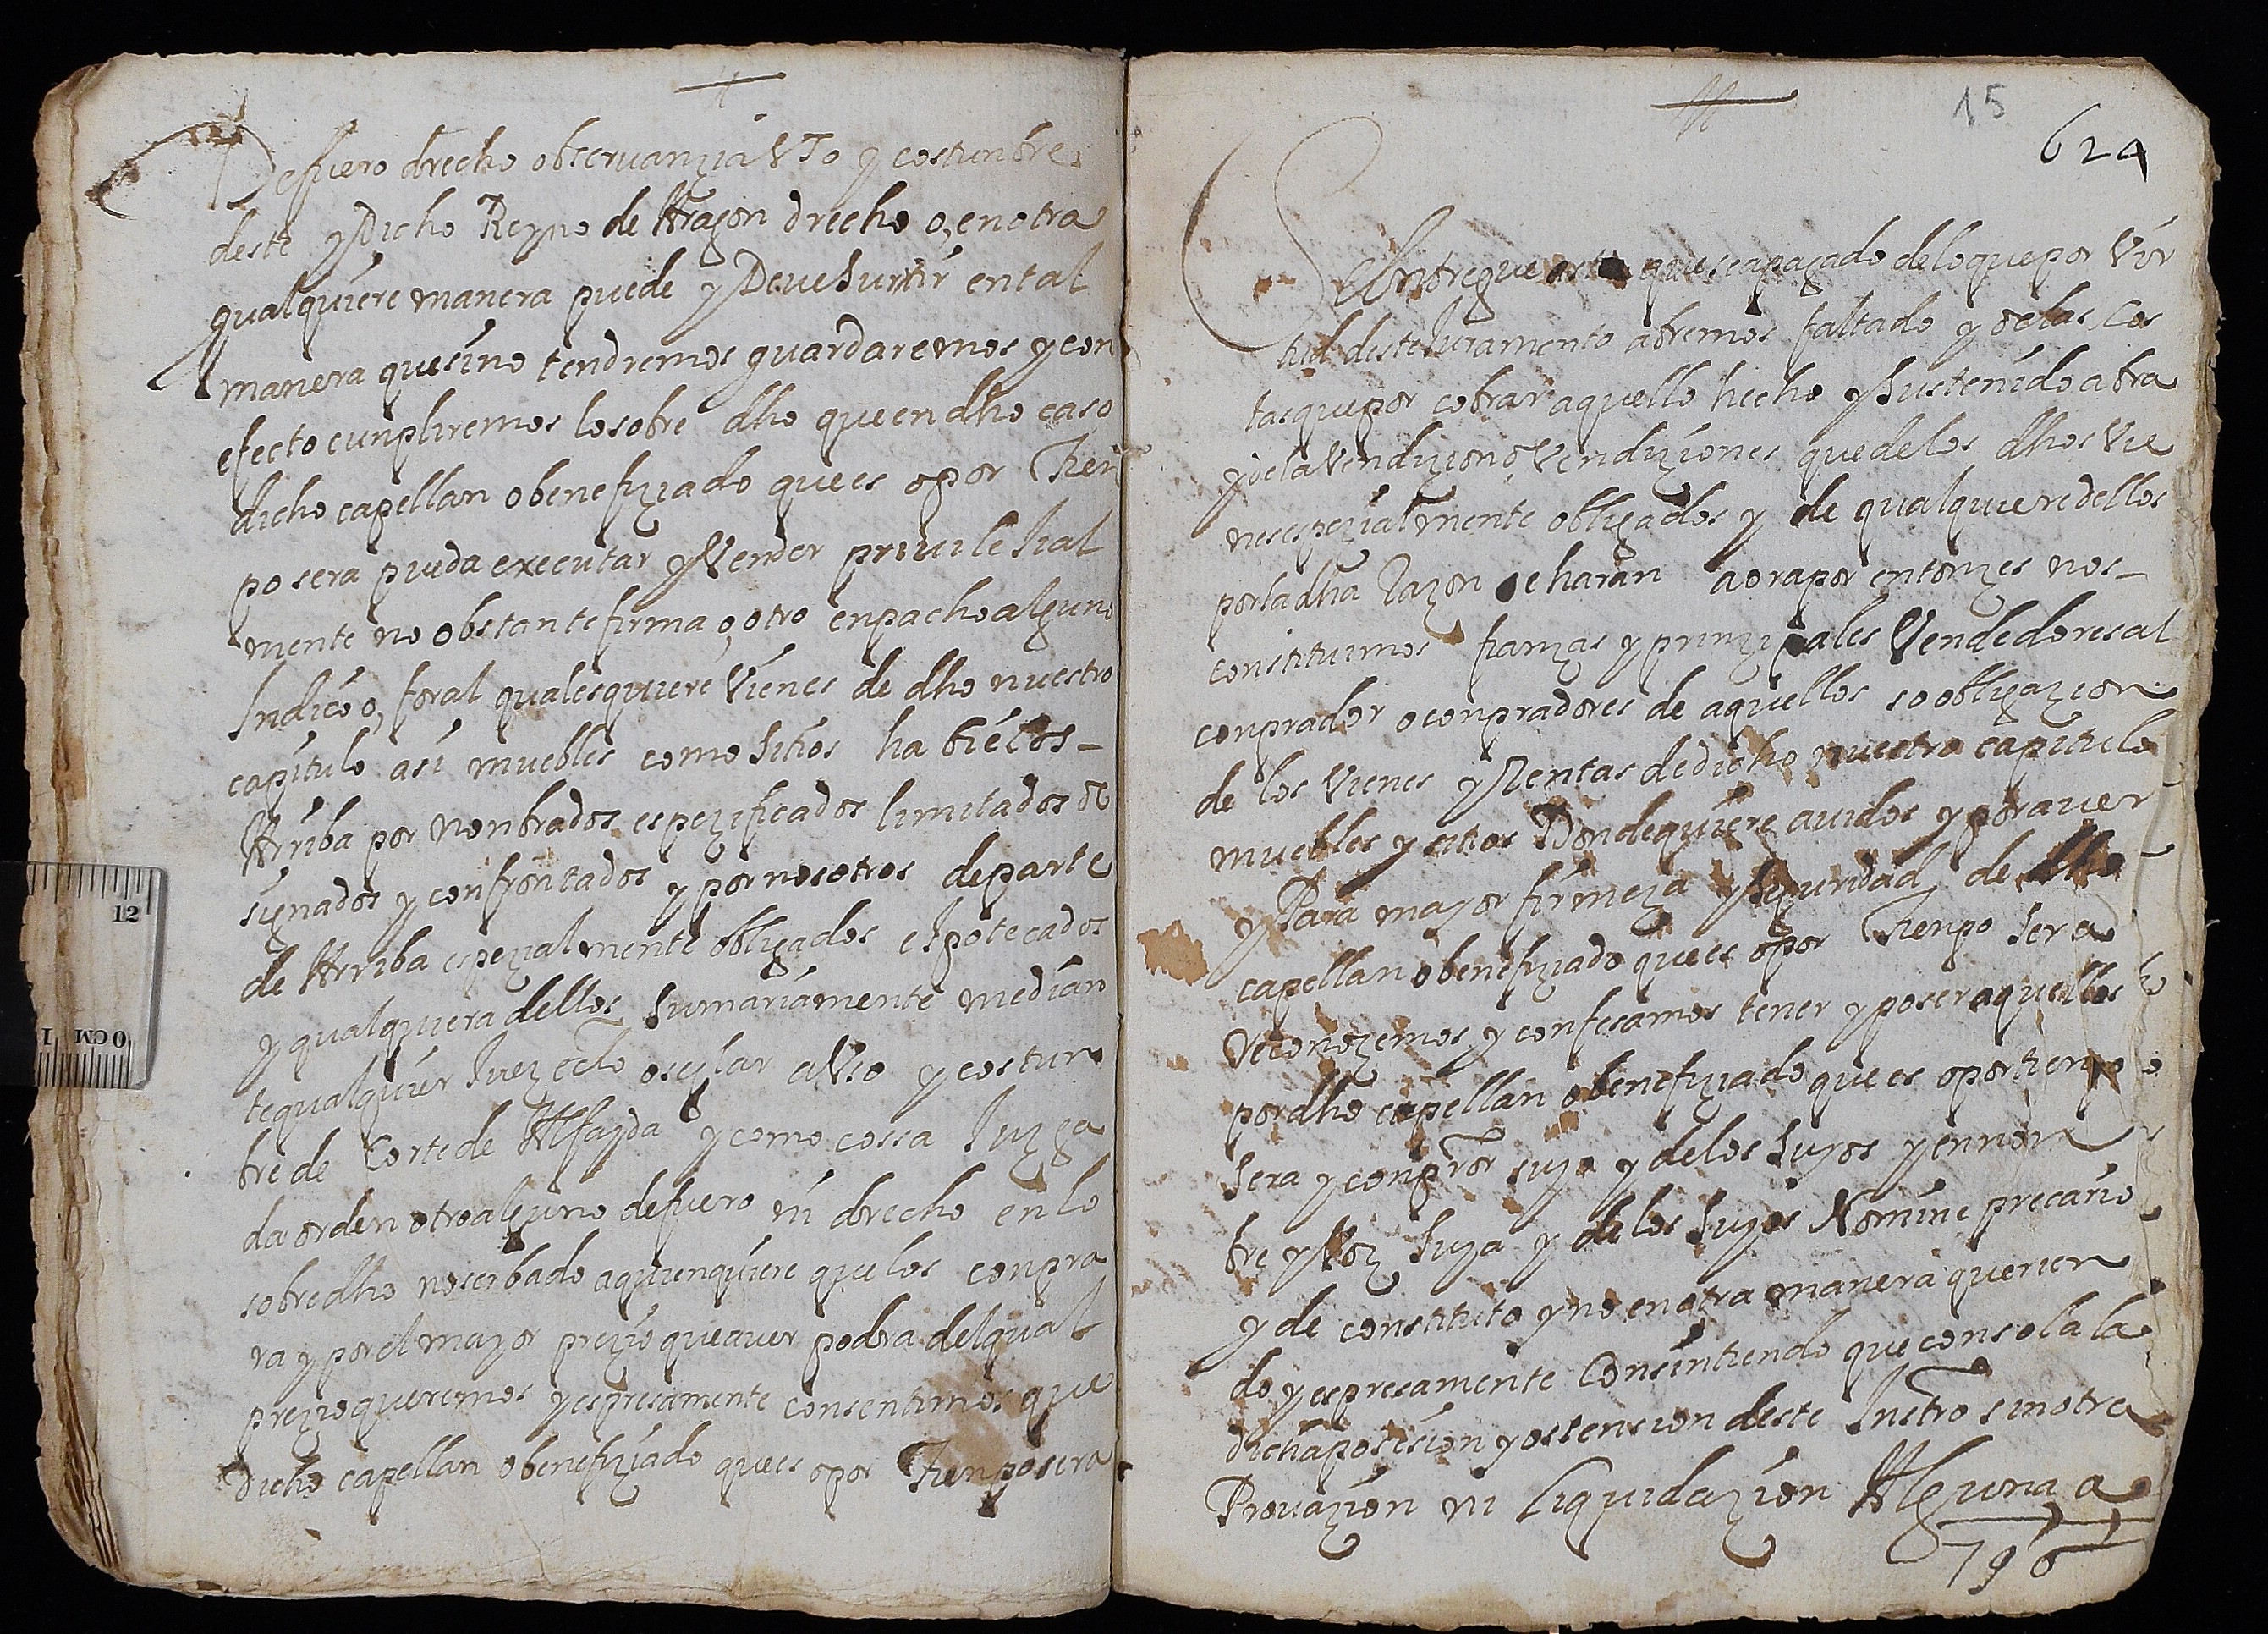 De fuero drecho obseruanzia Vso y costunbre
deste y Dicho Reyno de Aragon drecho o, en otra
qualquiere manera puede y Deue Surtir en tal
manera que sino tendremos guardaremos y con
efecto cunpliremos lo sobre dho que en dho caso
dicho capellan o benefiziado que es o por Tien
po sera pueda executar y Vender priuilexial
mente no obstante firma o, otro enpacho alguno
Judico o, foral qualesquiere Vienes de dho nuestro
capitulo asi muebles como Sitios
Arriba por nonbrados espezificados limitados de
signados y confrontados y por nosotros de parte
de Arriba espezialmente obligados e Ipotecados
y qualquiera dellos Sumariamente median
te qualquier Juez eclo o seglar a Vso y costun
bre de Corte de Alfayda y como cossa Juzga
da orden otro alguno de fuero ni drecho en lo
sobredho no serbado a quienquiere que los conpra
ra y por el mayor prezio que auer podra del qual
prezio queremos y espresamente consentimos que
Dicho capellan o benefiziado que es o por Tienpo sera
15
624
Se Entregue asta que sea pagado de lo que por Vir
tud deste Juramento abremos faltado y de las Cos
tas que por cobrar aquello hecho y Sustenido abra
y de la Vendizion o Vendiziones que de los dhos Vie
nes espezialmente obligados y de qualquiere dellos
por la dha Razon se haran aora por entonzes nos
constituimos fianzas y prinzipales Vendedores al
conprador o conpradores de aquellos so obligazion
de los Vienes y Rentas de dicho nuestro capitulo
muebles y sitios Dondequiere auidos y por auer
y Para mayor firmeza y Seguridad de dho
capellan o benefiziado que es o por Tienpo Sera
Reconozemos y confesamos tener y poser aquellos
por dho capellan o benefiziado que es o por tienpo
Sera y conpror suyo y de los Suyos y en non
bre y Voz Suya y de los Suyos Nomine precario
y de constituto y no en otra manera querien
do y espresamente Consintiendo que con sola la
dicha posision y ostension deste Instro sin otra
Prouazion ni Liquidazion Alguna a
796